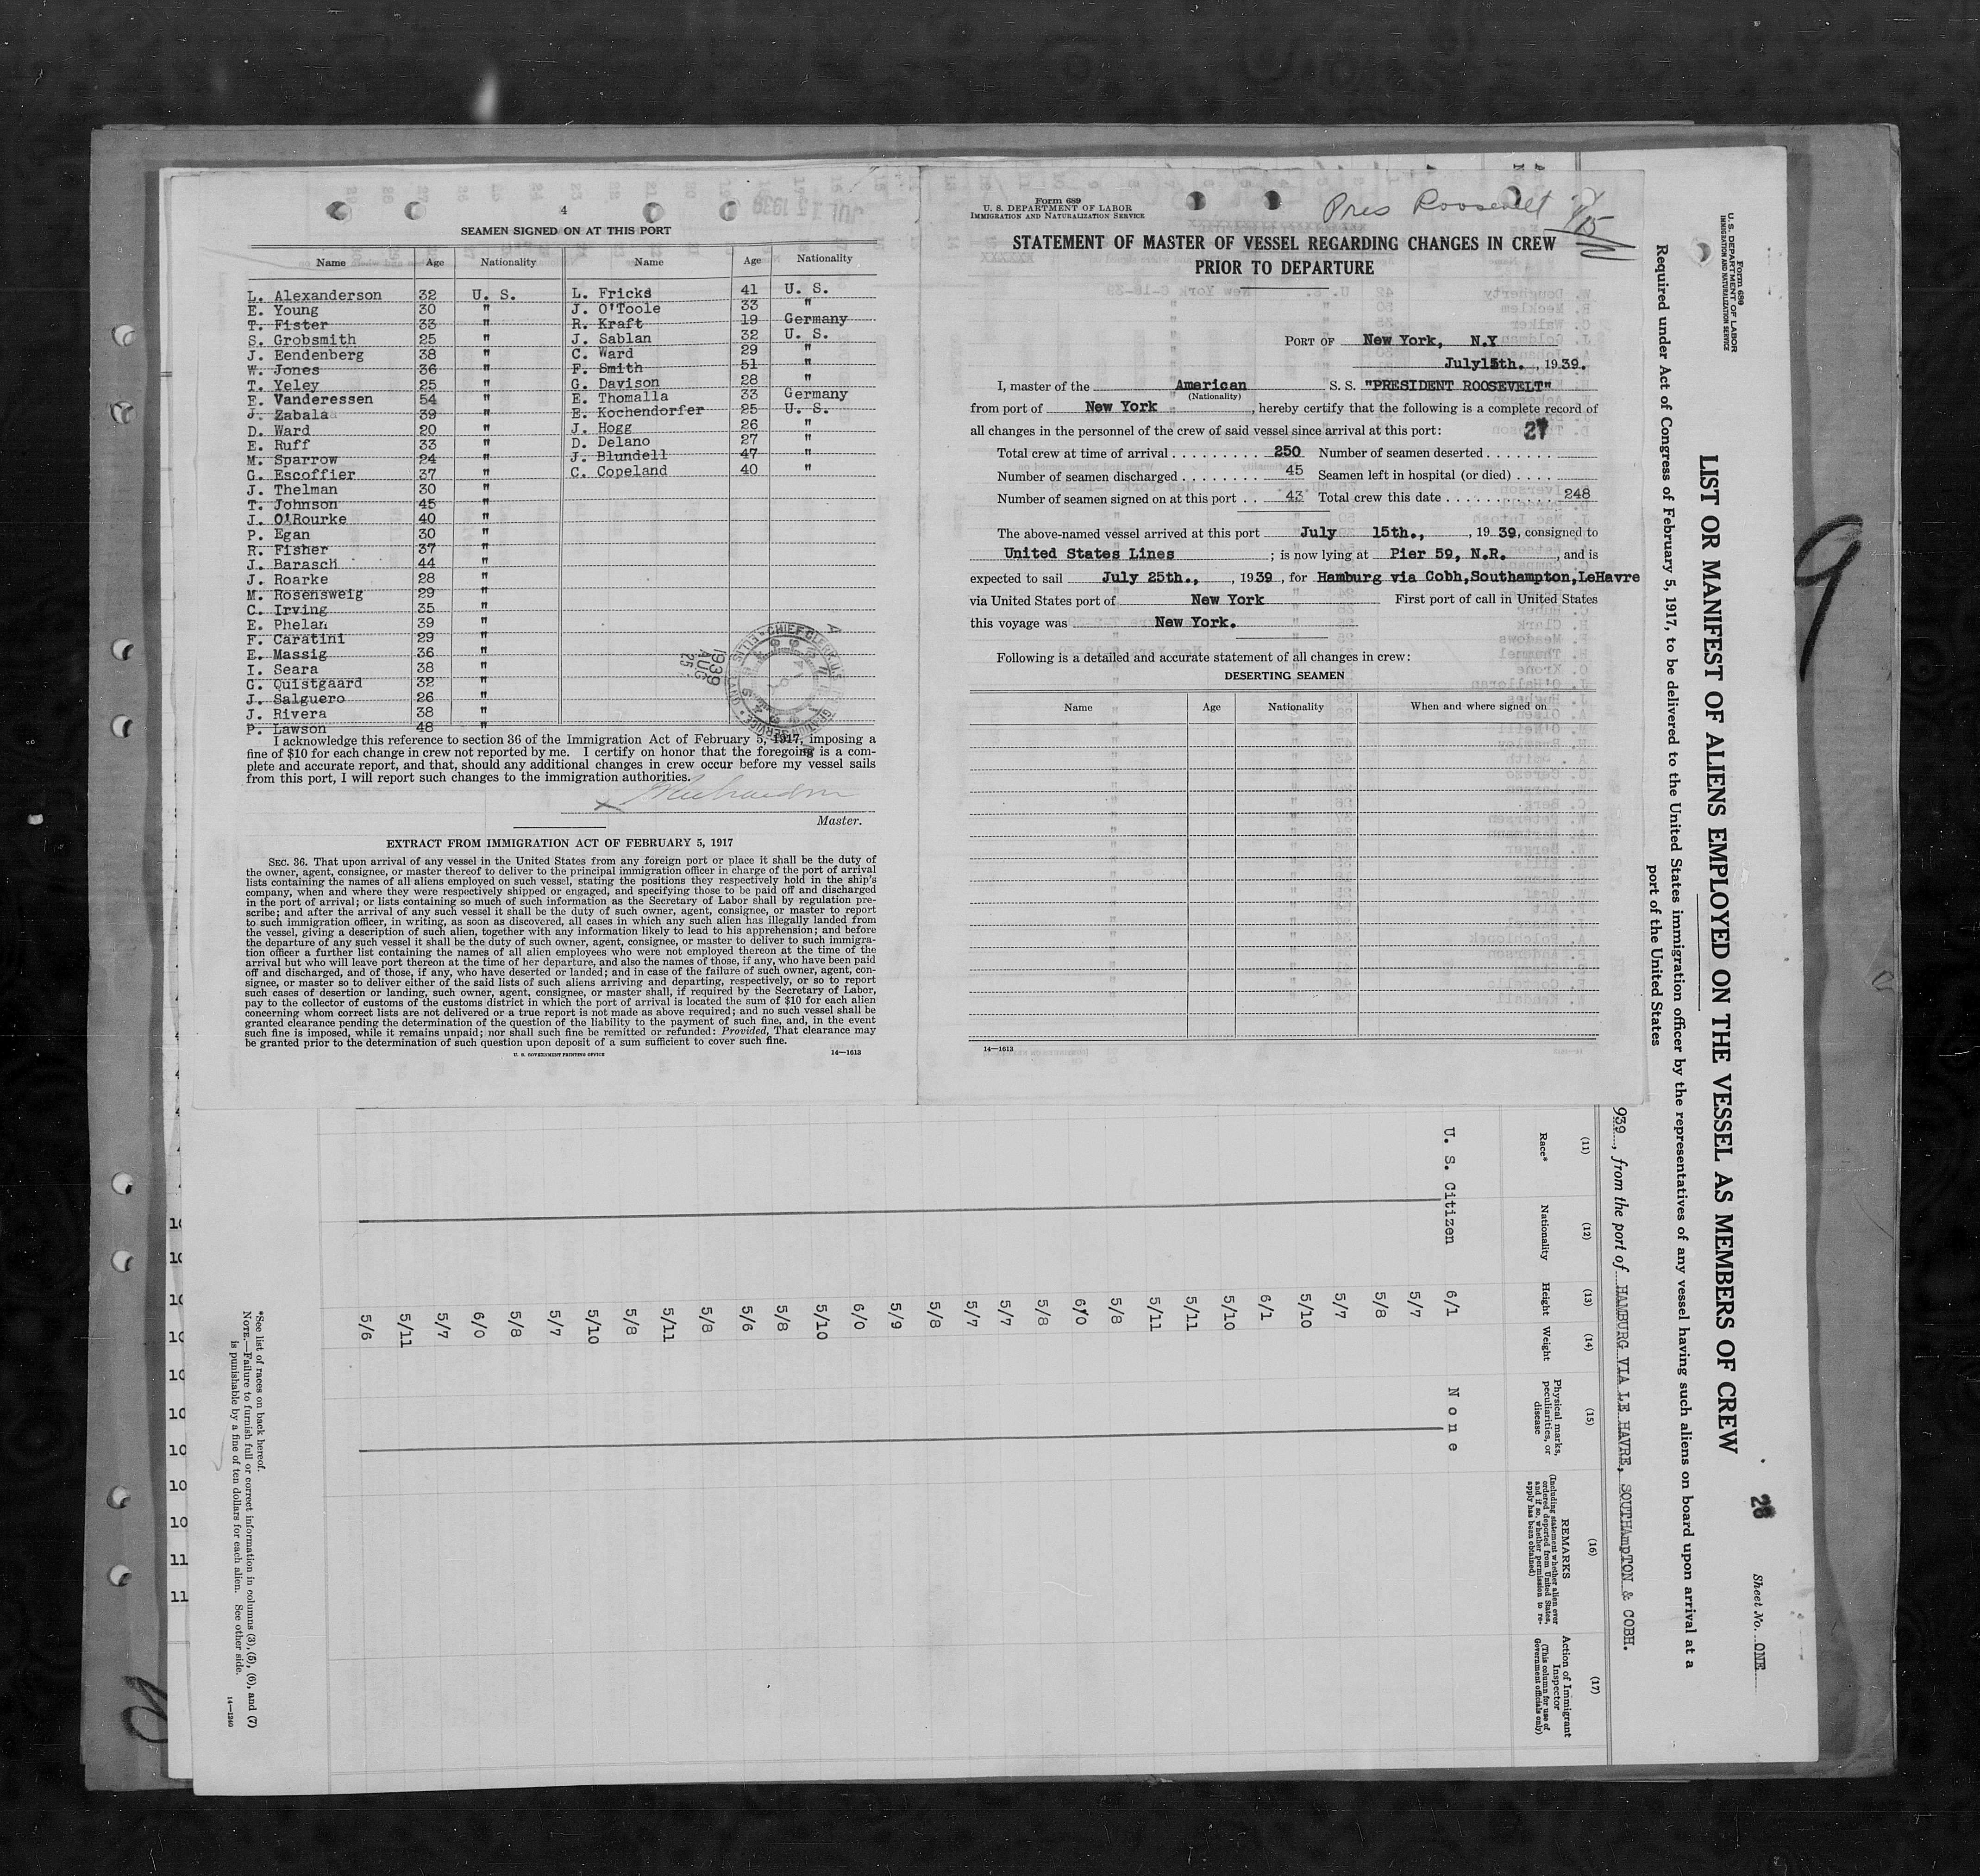 4
SEAMEN SIGNED ON AT THIS PORT
Name Age Nationality Name Age Nationality
L. Alexanderson 32 U. S. L. Fricks 41 U. S.
E. Young 30 " J. O'Toole 33 "
T. Fister 33 " R. Kraft 19 Germany
S. Grobsmith 25 " J. Sablan 32 U. S.
J. Eendenberg 38 " C. Ward 29 "
W. Jones 36 " F. Smith 51 "
T. Yeley 25 " G. Davison 28 "
F. Vanderessen 54 " E. Thomalla 33 Germany
J. Zabala 39 " E. Kochendorfer 25 U. S.
D. Ward 20 " J. Hogg 26 "
E. Ruff 33 " D. Delano 27 "
M. Sparrow 24 " J. Blundell 47 "
G. Escoffier 37 " C. Copeland 40 "
J. Thelman 30 "
T. Johnson 45 "
J. O'Rourke 40 "
P. Egan 30 "
R. Fisher 37 "
J. Barasch 44 "
J. Roarke 28 "
M. Rosensweig 29 "
C. Irving 35 "
E. Phelan 39 "
F. Caratini 29 "
E. Massig 36 "
I. Seara 38 "
G. Quistgaard 32 "
J. Salguero 26 "
J. Rivera 38 "
P. Lawson 48 "
1939
AUG
25
I acknowledge this reference to section 36 of the Immigration Act of February 5, 1917, imposing a
fine of $10 for each change in crew not reported by me. I certify on honor that the foregoing is a com-
plete and accurate report, and that, should any additional changes in crew occur before my vessel sails
from this port, I will report such changes to the immigration authorities.
Master.
EXTRACT FROM IMMIGRATION ACT OF FEBRUARY 5, 1917
SEC. 36. That upon arrival of any vessel in the United States from any foreign port or place it shall be the duty of
the owner, agent, consignee, or master thereof to deliver to the principal immigration officer in charge of the port of arrival
lists containing the names of all aliens employed on such vessel, stating the positions they respectively hold in the ship's
company, when and where they were respectively shipped or engaged, and specifying those to be paid off and discharged
in the port of arrival; or lists containing so much of such information as the Secretary of Labor shall by regulation pre-
scribe; and after the arrival of any such vessel it shall be the duty of such owner, agent, consignee, or master to report
to such immigration officer, in writing, as soon as discovered, all cases in which any such alien has illegally landed from
the vessel, giving a description of such alien, together with any information likely to lead to his apprehension; and before
the departure of any such vessel it shall be the duty of such owner, agent, consignee, or master to deliver to such immigra-
tion officer a further list containing the names of all alien employees who were not employed thereon at the time of the
arrival but who will leave port thereon at the time of her departure, and also the names of those, if any, who have been paid
off and discharged, and of those, if any, who have deserted or landed; and in case of the failure of such owner, agent, con-
signee, or master so to deliver either of the said lists of such aliens arriving and departing, respectively, or so to report
such cases of desertion or landing, such owner, agent, consignee, or master shall, if required by the Secretary of Labor,
pay to the collector of customs of the customs district in which the port of arrival is located the sum of $10 for each alien
concerning whom correct lists are not delivered or a true report is not made as above required; and no such vessel shall be
granted clearance pending the determination of the question of the liability to the payment of such fine, and, in the event
such fine is imposed, while it remains unpaid; nor shall such fine be remitted or refunded: Provided, That clearance may
be granted prior to the determination of such question upon deposit of a sum sufficient to cover such fine.
U. S. GOVERNMENT PRINTING OFFICE 14—1613
Form 689
U. S. DEPARTMENT OF LABOR
IMMIGRATION AND NATURALIZATION SERVICE
Pres Roosevelt 7/15
STATEMENT OF MASTER OF VESSEL REGARDING CHANGES IN CREW
PRIOR TO DEPARTURE
PORT OF New York, N.Y
July 15th. , 1939.
I, master of the American S. S. "PRESIDENT ROOSEVELT"
(Nationality)
from port of New York , hereby certify that the following is a complete record of
all changes in the personnel of the crew of said vessel since arrival at this port: 27
Total crew at time of arrival 250 Number of seamen deserted
Number of seamen discharged 45 Seamen left in hospital (or died)
Number of seamen signed on at this port 43 Total crew this date 248
The above-named vessel arrived at this port July 15th., , 1939, consigned to
United States Lines ; is now lying at Pier 59, N.R. , and is
expected to sail July 25th., , 1939 , for Hamburg via Cobh,Southampton,LeHavre
via United States port of New York First port of call in United States
this voyage was New York.
Following is a detailed and accurate statement of all changes in crew:
DESERTING SEAMEN
Name Age Nationality When and where signed on
14—1613
Form 689
U. S. DEPARTMENT OF LABOR
IMMIGRATION AND NATURALIZATION SERVICE
26
Sheet No. ONE
LIST OR MANIFEST OF ALIENS EMPLOYED ON THE VESSEL AS MEMBERS OF CREW
Required under Act of Congress of February 5, 1917, to be delivered to the United States immigration officer by the representatives of any vessel having such aliens on board upon arrival at a
port of the United States
939 , from the port of HAMBURG VIA LE HAVRE, SOUTHAmpTON & COBH.
(11) (12) (13) (14) (15) (16) (17)
Race* Nationality Height Weight Physical marks, peculiarities, or disease
REMARKS
(Including statement whether alien ever ordered deported from United States, and if so, whether permission to re-apply has been obtained)
Action of Immigrant Inspector
(This column for use of Government officials only)
U. S. Citizen 6/1 None
5/7
5/8
5/7
5/10
6/1
5/10
5/11
5/11
5/8
6/0
5/8
5/7
5/7
5/8
5/9
6/0
5/10
5/8
5/6
5/8
5/11
5/8
5/10
5/7
5/8
6/0
5/7
5/11
5/6
*See list of races on back hereof.
NOTE.—Failure to furnish full or correct information in columns (3), (5), (6), and (7)
is punishable by a fine of ten dollars for each alien. See other side.
14—1240
9
10
10
10
10
10
10
10
10
11
11